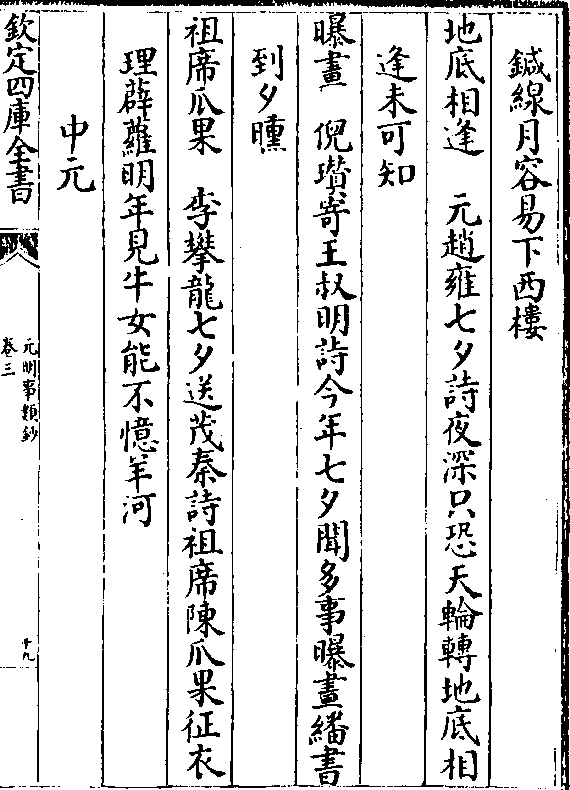 鍼線月容易下西樓
地底相逢　元趙雍七夕詩夜深只恐天輪轉地底相
逢未可知
曝畫　倪瓚寄王叔明詩今年七夕聞多事曝畫繙書
到夕曛
祖席瓜果　李攀龍七夕送茂秦詩祖席陳瓜果征衣
理薜蘿明年見牛女能不憶羊河
中元
欽定四庫全書
元明事類鈔
卷三
十九